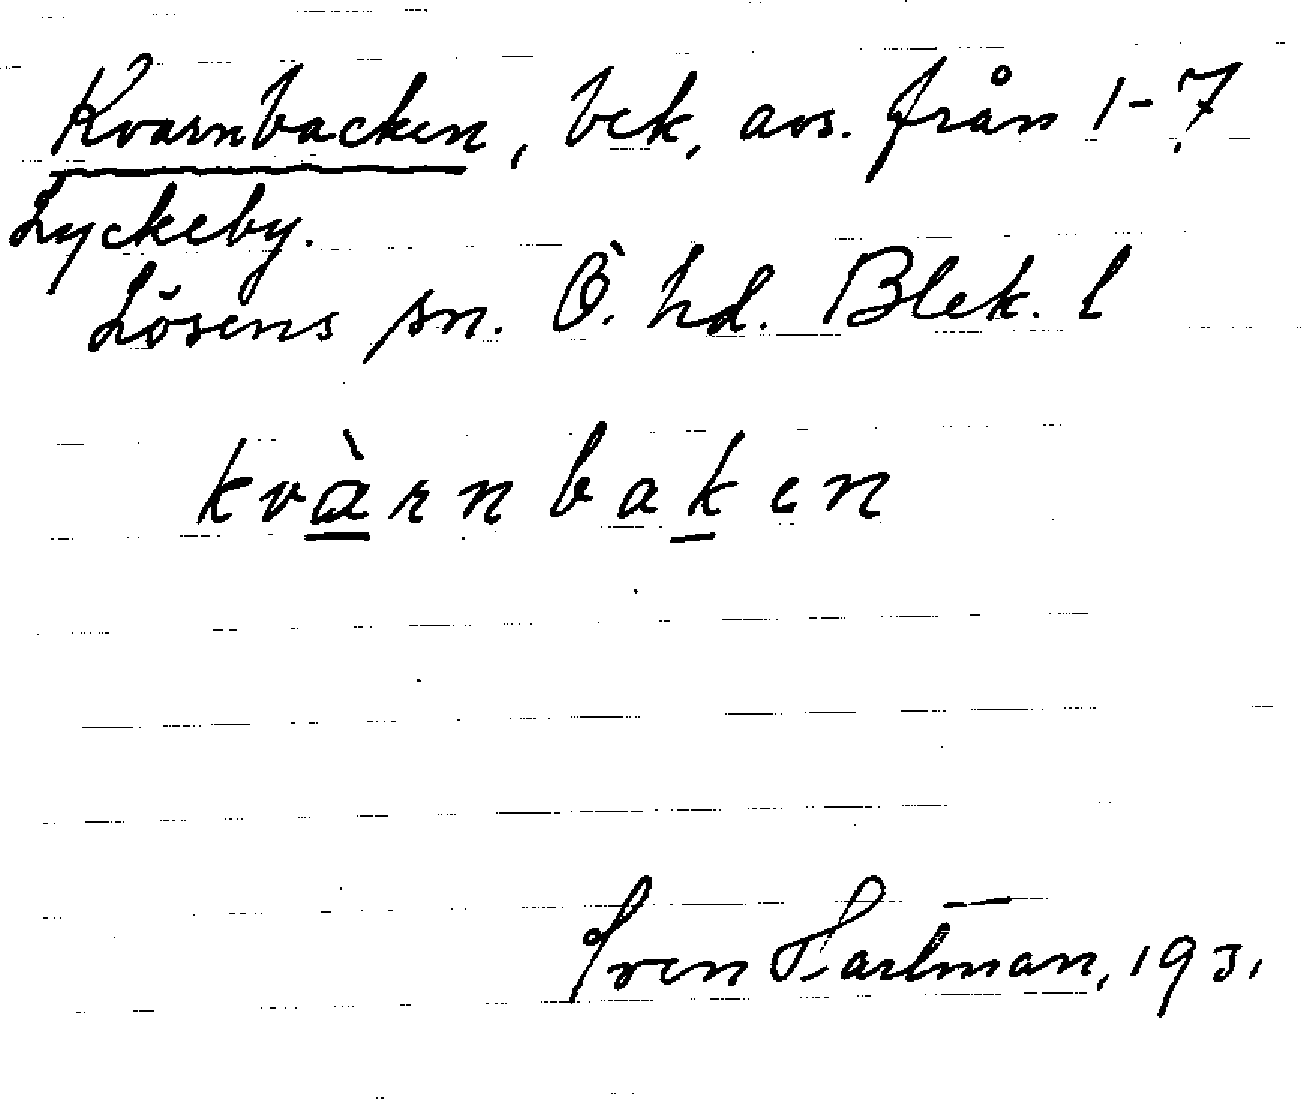 Kvarnbacken, bek, avs. från 1-7
Lyckeby.
Lösens sn. Ö. hd. Blek. l
kvàrnbaken
Sven Hartman, 1931